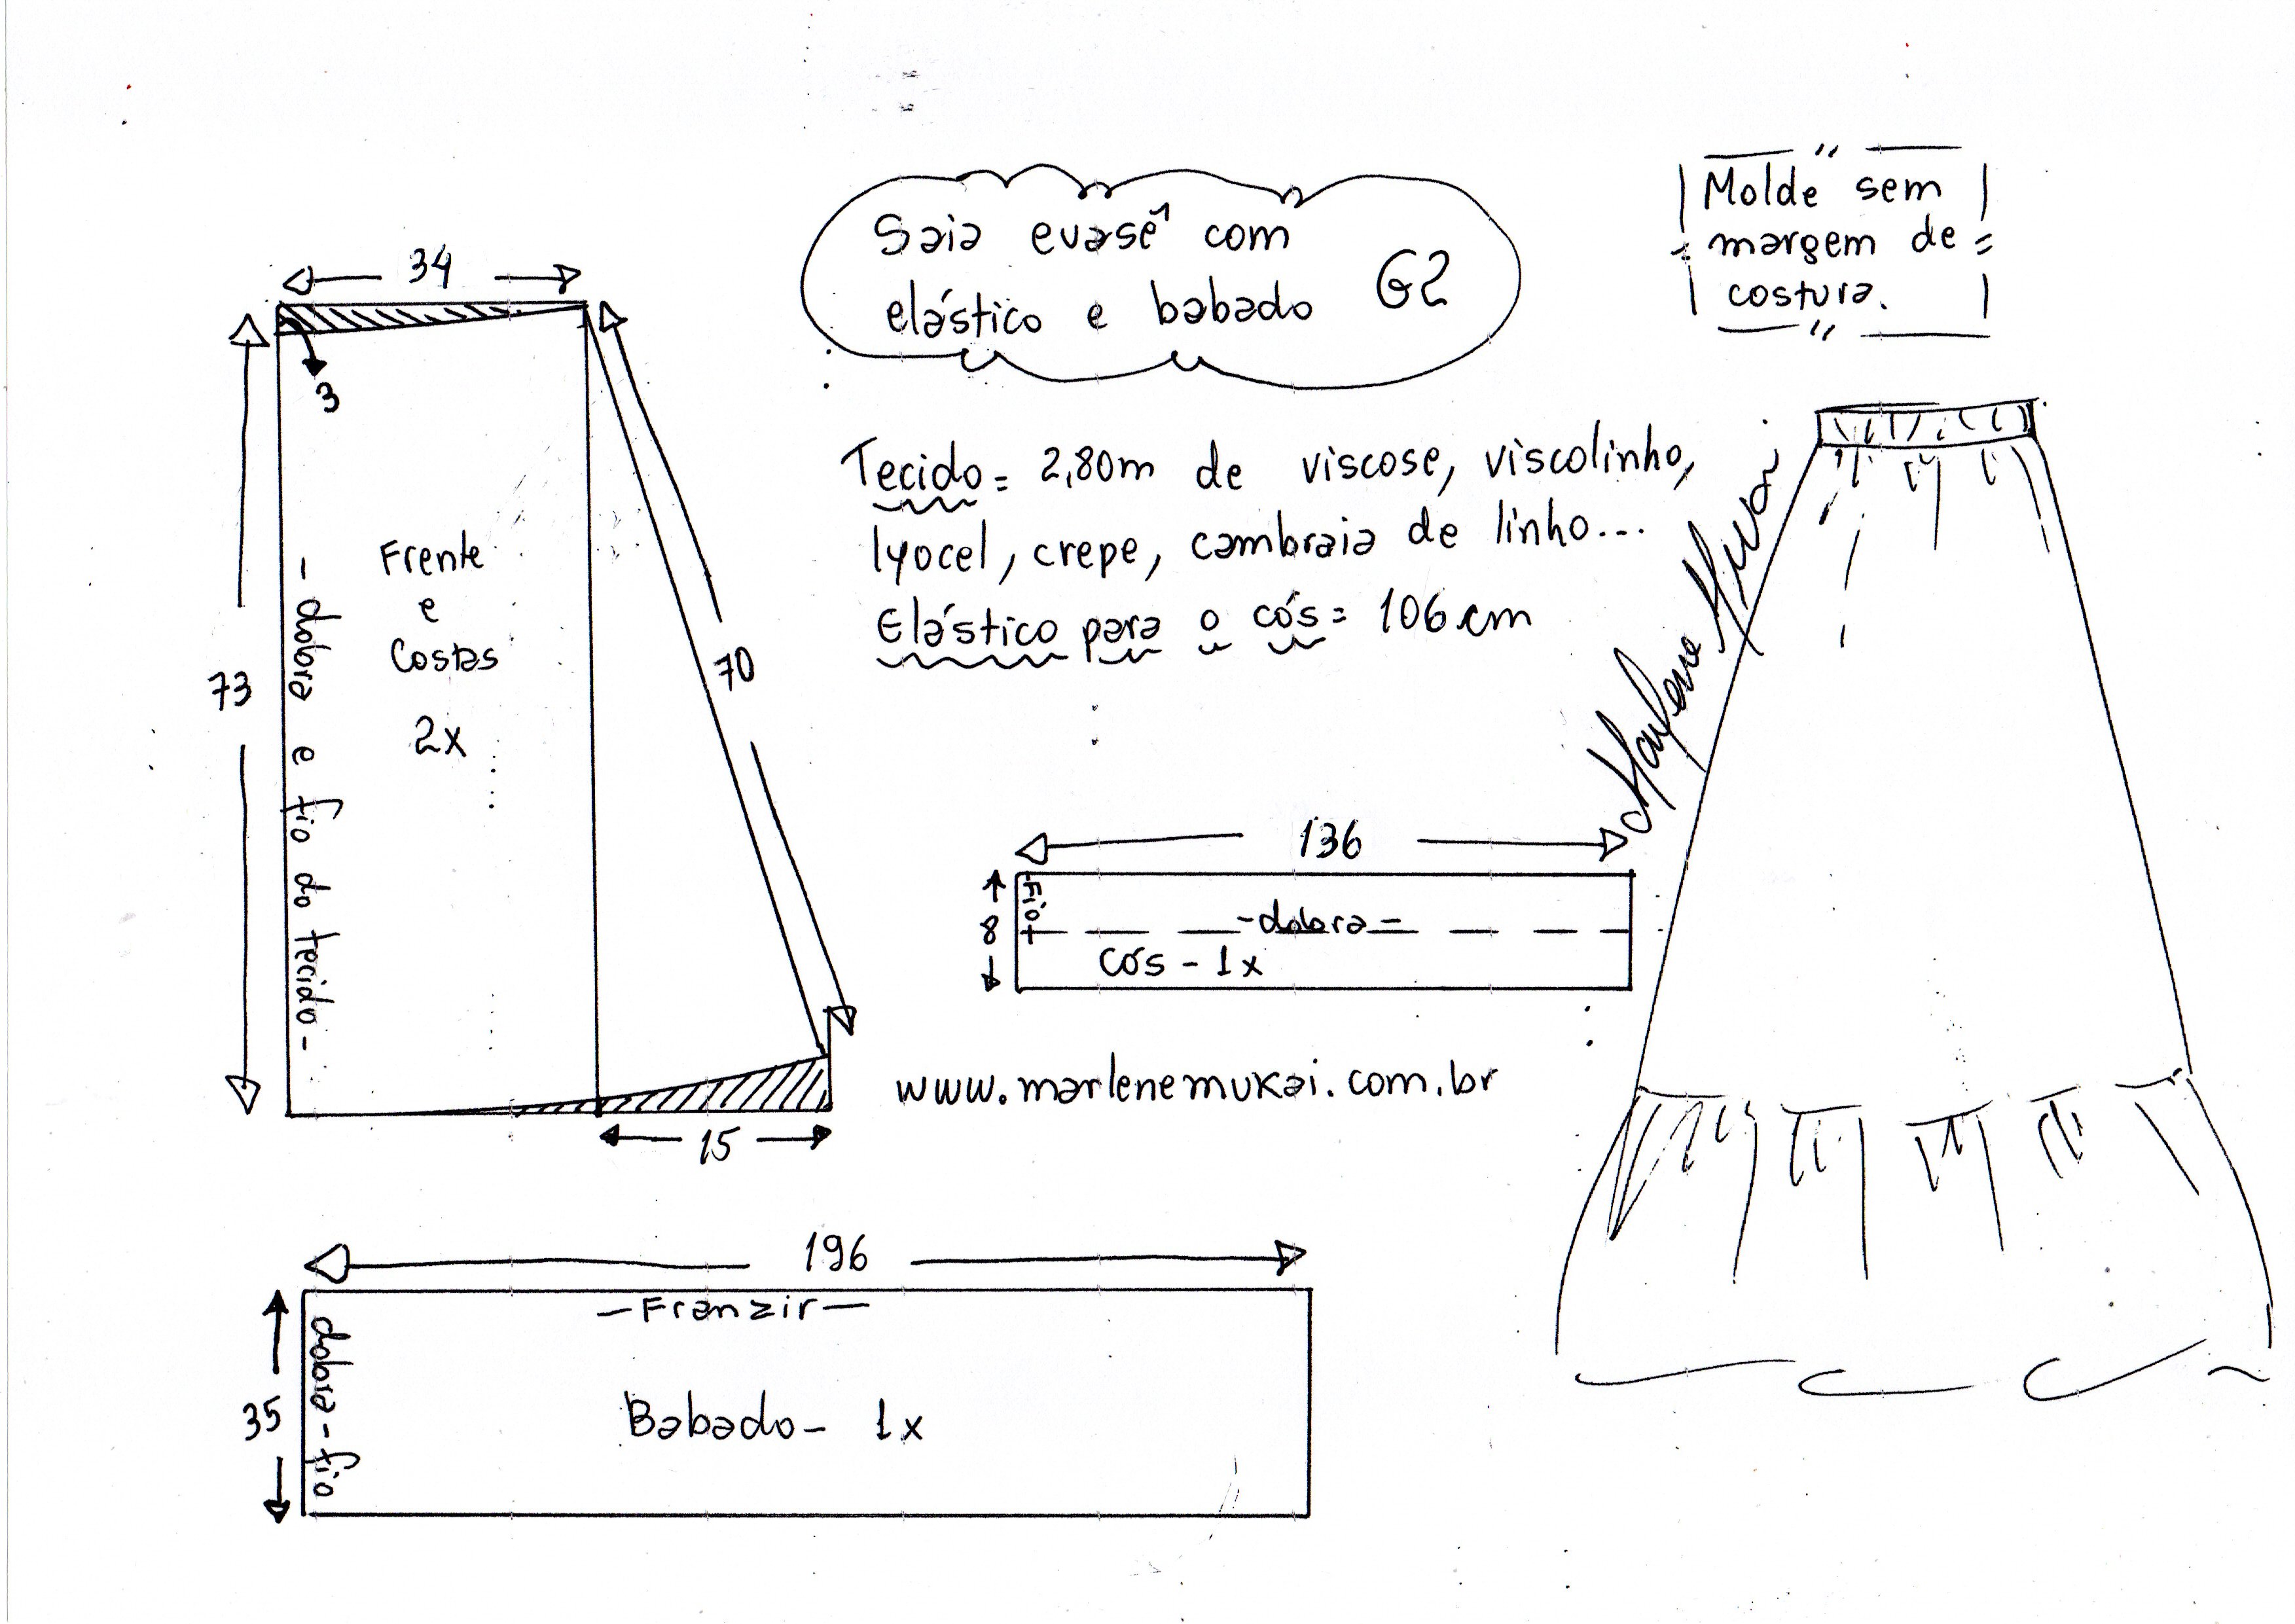 Saia evasê com
elástico e babado G2
Molde sem
margem de
costura.
34
3
73
70
15
Frente
e
Costas
2x
- dobra e fio do tecido -
Tecido = 2,80m de viscose, viscolinho,
lyocel, crepe, cambraia de linho...
Elástico para o cós = 106 cm
Marlene Mukai
136
8
Fio
- dobra =
Cós - 1x
www.marlenemukai.com.br
196
35
- Franzir -
dobra - fio
Babado - 1x